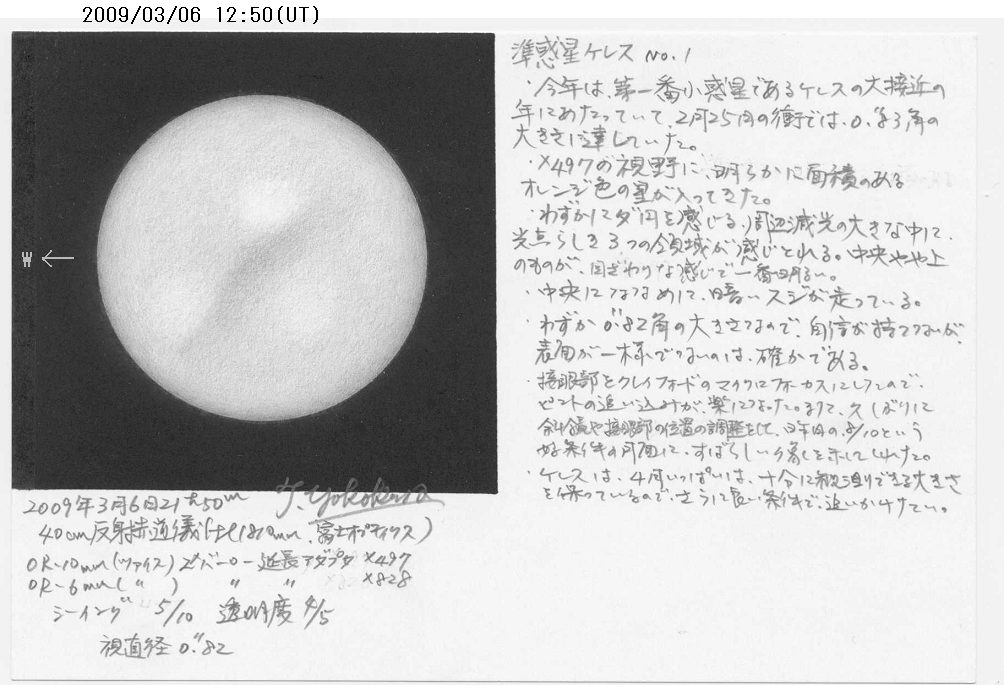 2009/03/06 12:50(UT)
W ←
準惑星ケレス No.1
・今年は、第一番小惑星であるケレスの大接近の
年にあたっていて、2月25日の衝では、0."83角の
大きさに達していた。
・×497の視野に、明らかに面積のある
オレンジ色の星が入ってきた。
・わずかにダ円を感じる、周辺減光の大きな中に、
光点らしき3つの領域が感じとれる。中央やや上
のものが、目ざわりな感じで一番明るい。
・中央にななめに、暗いスジが走っている。
・わずか0."82角の大きさなので、自信が持てないが、
表面が一様でないのは、確かである。
・接眼部をクレイフォードのマイクロフォーカスにしたので、
ピントの追い込みが、楽になった。まて、久しぶりに
斜鏡や接眼部の位置の調整をして、昨日の8/10という
好条件の月面に、すばらしい像を示してくれた。
・ケレスは、4月いっぱいは、十分に観測できる大きさ
を保っているので、さらに良い条件で、追いかけたい。
Yokokura
2009年3月6日21h50m
40cm反射赤道儀(fl=1810mm、富士オプティクス)
OR-10mm(ツァイス) 2×バーロー 延長アダプタ ×497
OR-6mm( 〃 ) 〃 〃 ×828
シーイング 5/10 透明度 4/5
視直径 0."82